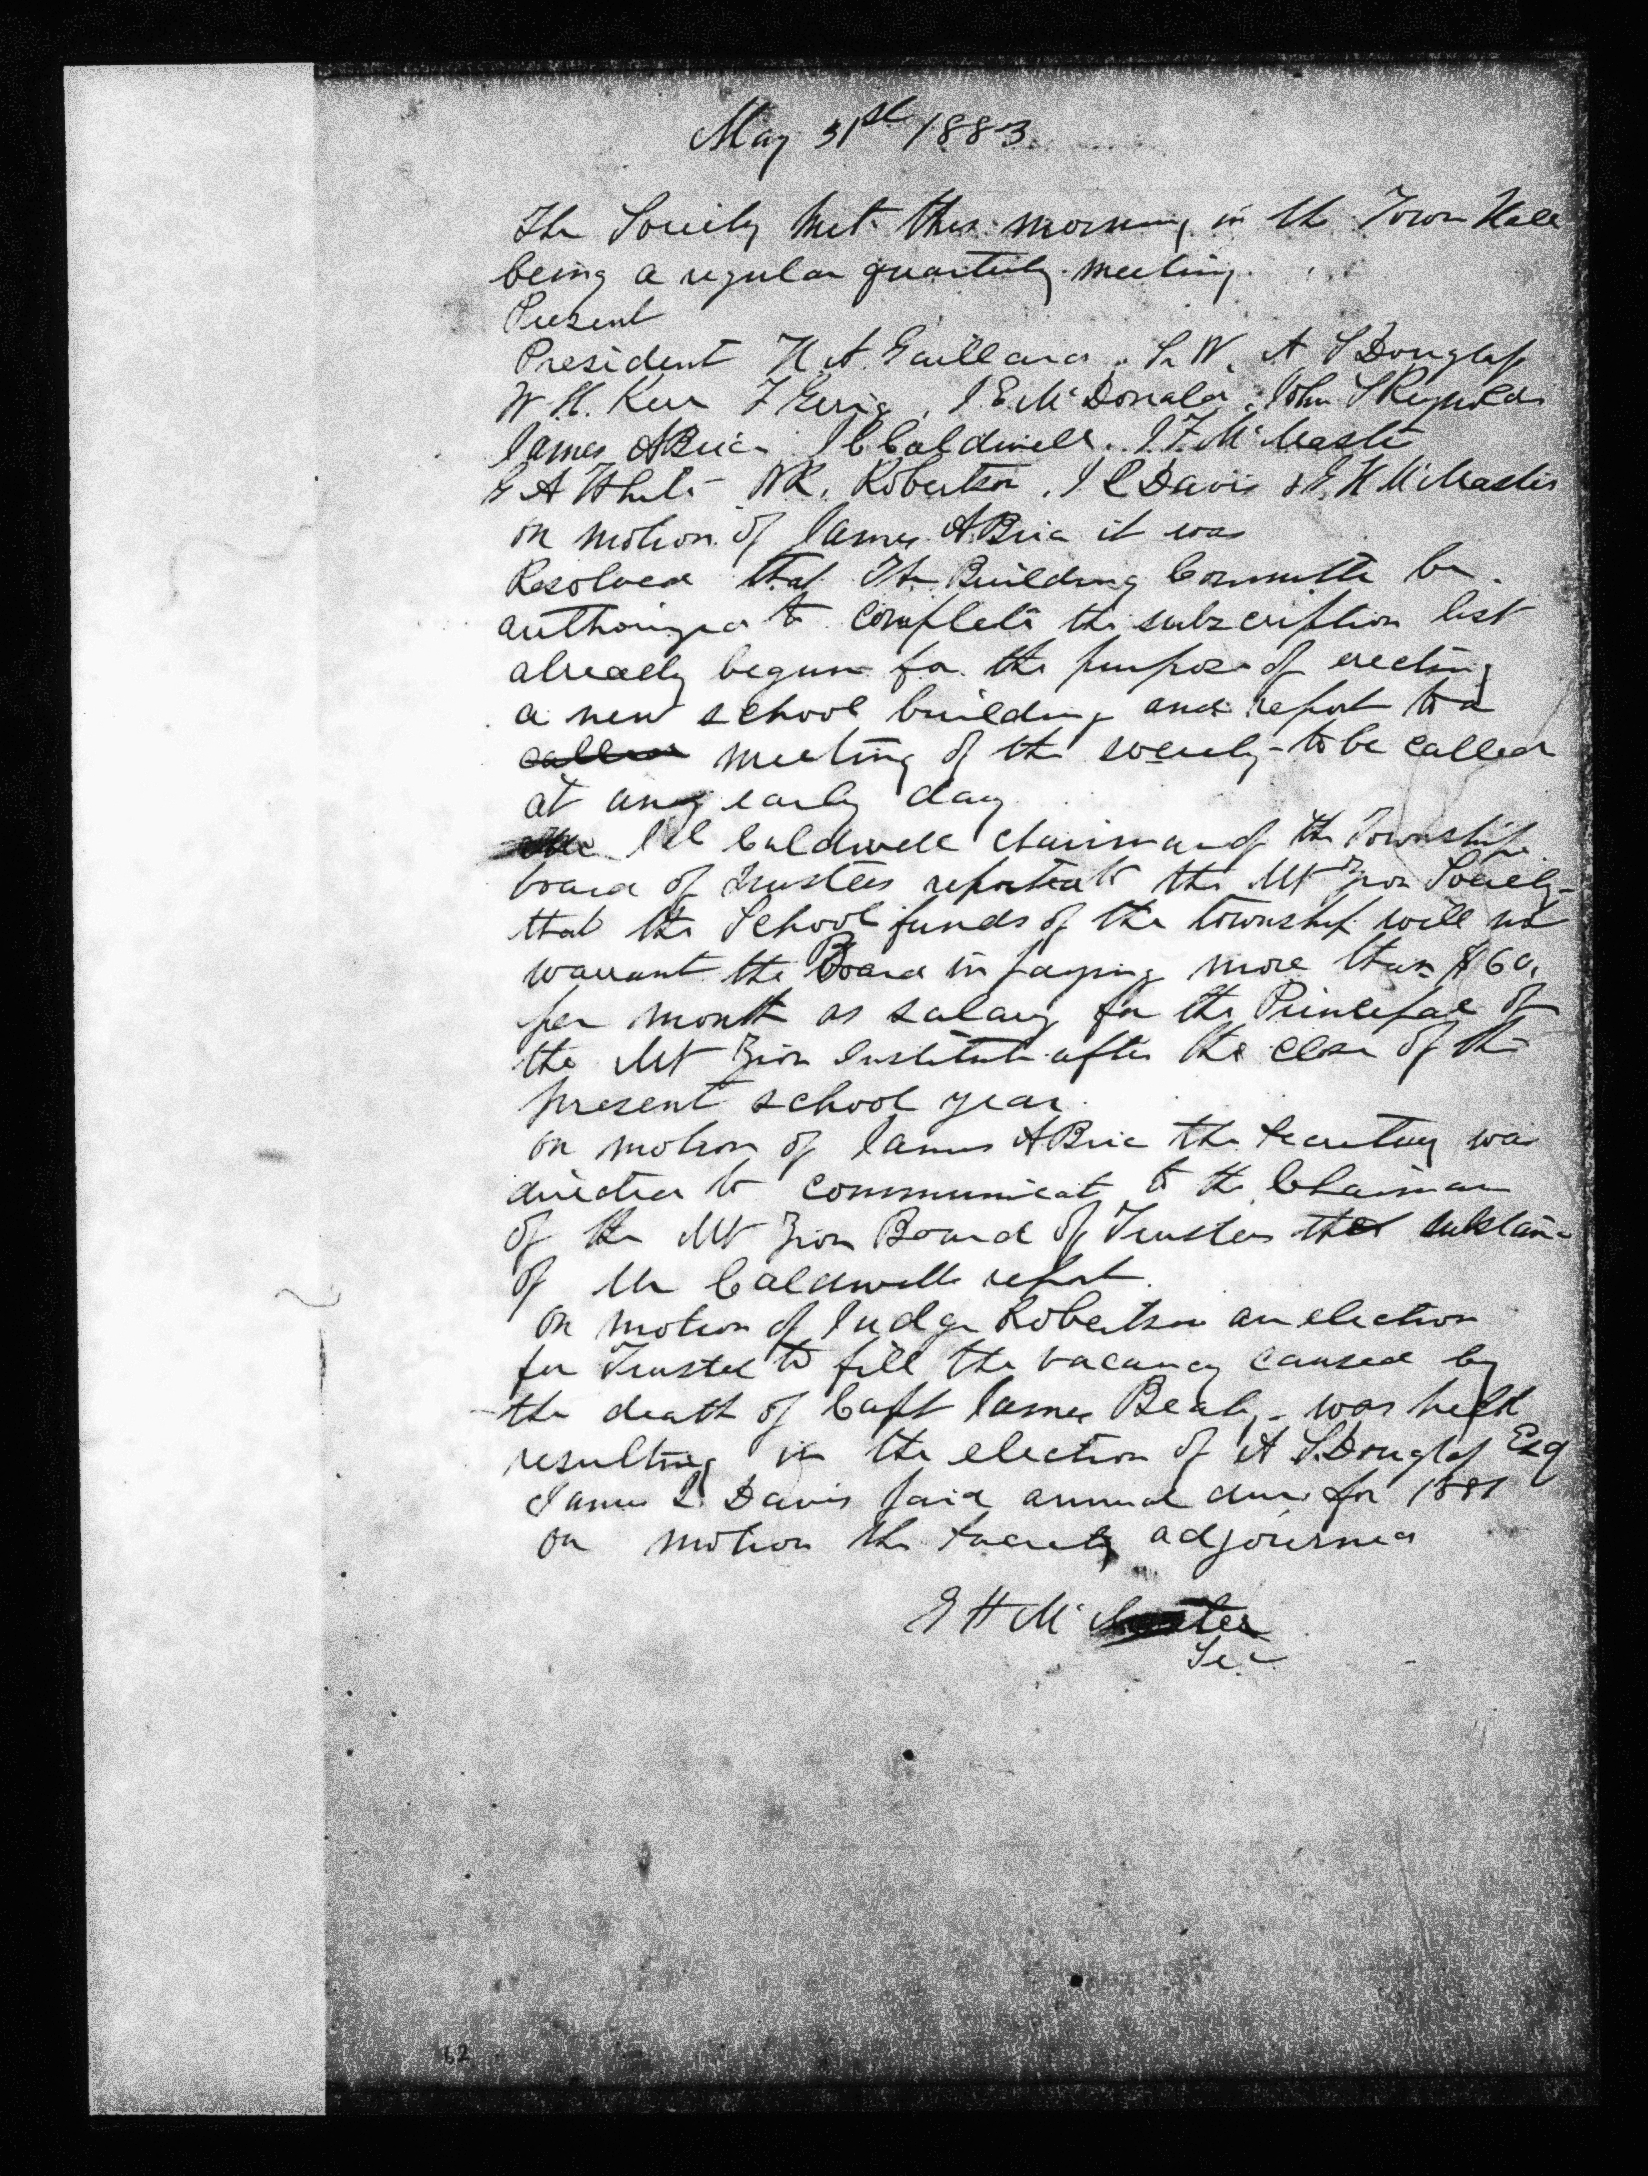 May 31st 1883
The Society met this morning in the Town Hall
being a regular quarterly meeting.
Present
President H. A. Gaillard. S. W. A S Douglass
W. H. Kerr F Gerig, J. E. McDonald, John S Reynolds
James A Brice J C Caldwell. J. F. McMaster
G A White W R. Robertson, J L Davis & G. H McMaster
on motion of James A Brice it was
Resolved that The Building Committee be
authorized to complete the subscription list
already begun for the purpose of erecting
a new school building and report to a
called meeting of the society - to be called
at any early day
J C Caldwell chairman of the Township
board of Trustees reported to the Mt Zion Society -
that the School funds of the township will not
warrant the Board in paying more than $60.
per month as salary for the Principal of
the Mt Zion Institute after the close of the
present school year.
on motion of James A Brice the secretary was
directed to communicate to the Chairman
of the Mt Zion Board of Trustees the substance
of Mr Caldwells report.
on motion of Judge Robertson an election
for Trustee to fill the vacancy caused by
the death of Capt James Beaty - was held
resulting in the election of A S. Douglass Esq
James L Davis paid annual dues for 1881
on motion the society adjourned
G H McMaster
Sec.
62